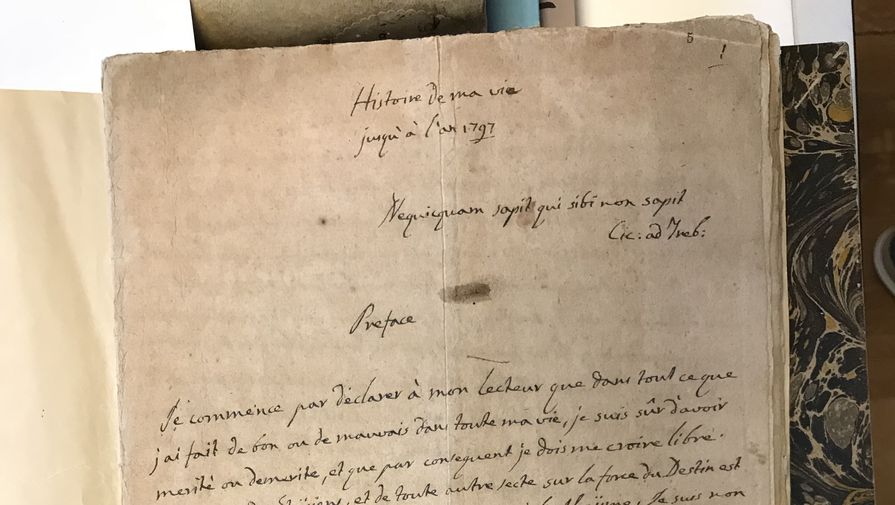 5
!
Histoire de ma vie
jusqu'à l'an 1797
Nequicquam sapit qui sibi non sapit
Cic: ad Treb:
Preface
Je commence par déclarer à mon lecteur que dans tout ce que
j'ai fait de bon ou de mauvais dans toute ma vie, je suis sûr d'avoir
merité ou demerité, et que par consequent je dois me croire libre.
et de toute autre secte sur la force du Destin est
Je suis non